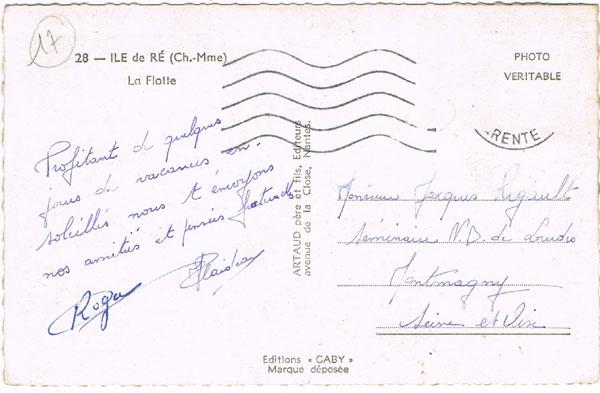 17
28 — ILE de RÉ (Ch.-Mme)
La Flotte
PHOTO
VERITABLE
RENTE
Profitant de quelques
jours de vacances en-
soleillés nous t'envoyons
nos amitiés et pensées
Roger
ARTAUD père et fils, Editeurs
avenue de la Close, Nantes.
Monsieur Jacques Rigault
Séminaire N.D. de Lourdes
Montmagny
Seine et Oise
Editions « GABY »
Marque déposée